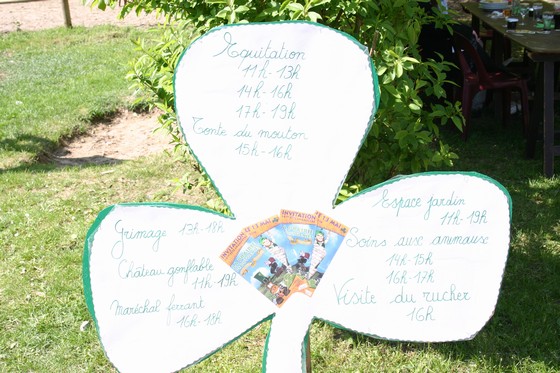 Equitation
11h-13h
14h-16h
17h-19h
Tonte du mouton
15h-16h
Grimage 13h-18h
Château gonflable
11h-19h
Maréchal ferrant
16h-18h
INVITATION
INVITATION
Espace jardin
11h-19h
Soins aux animaux
14h-15h
16h-17h
Visite du rucher
16h